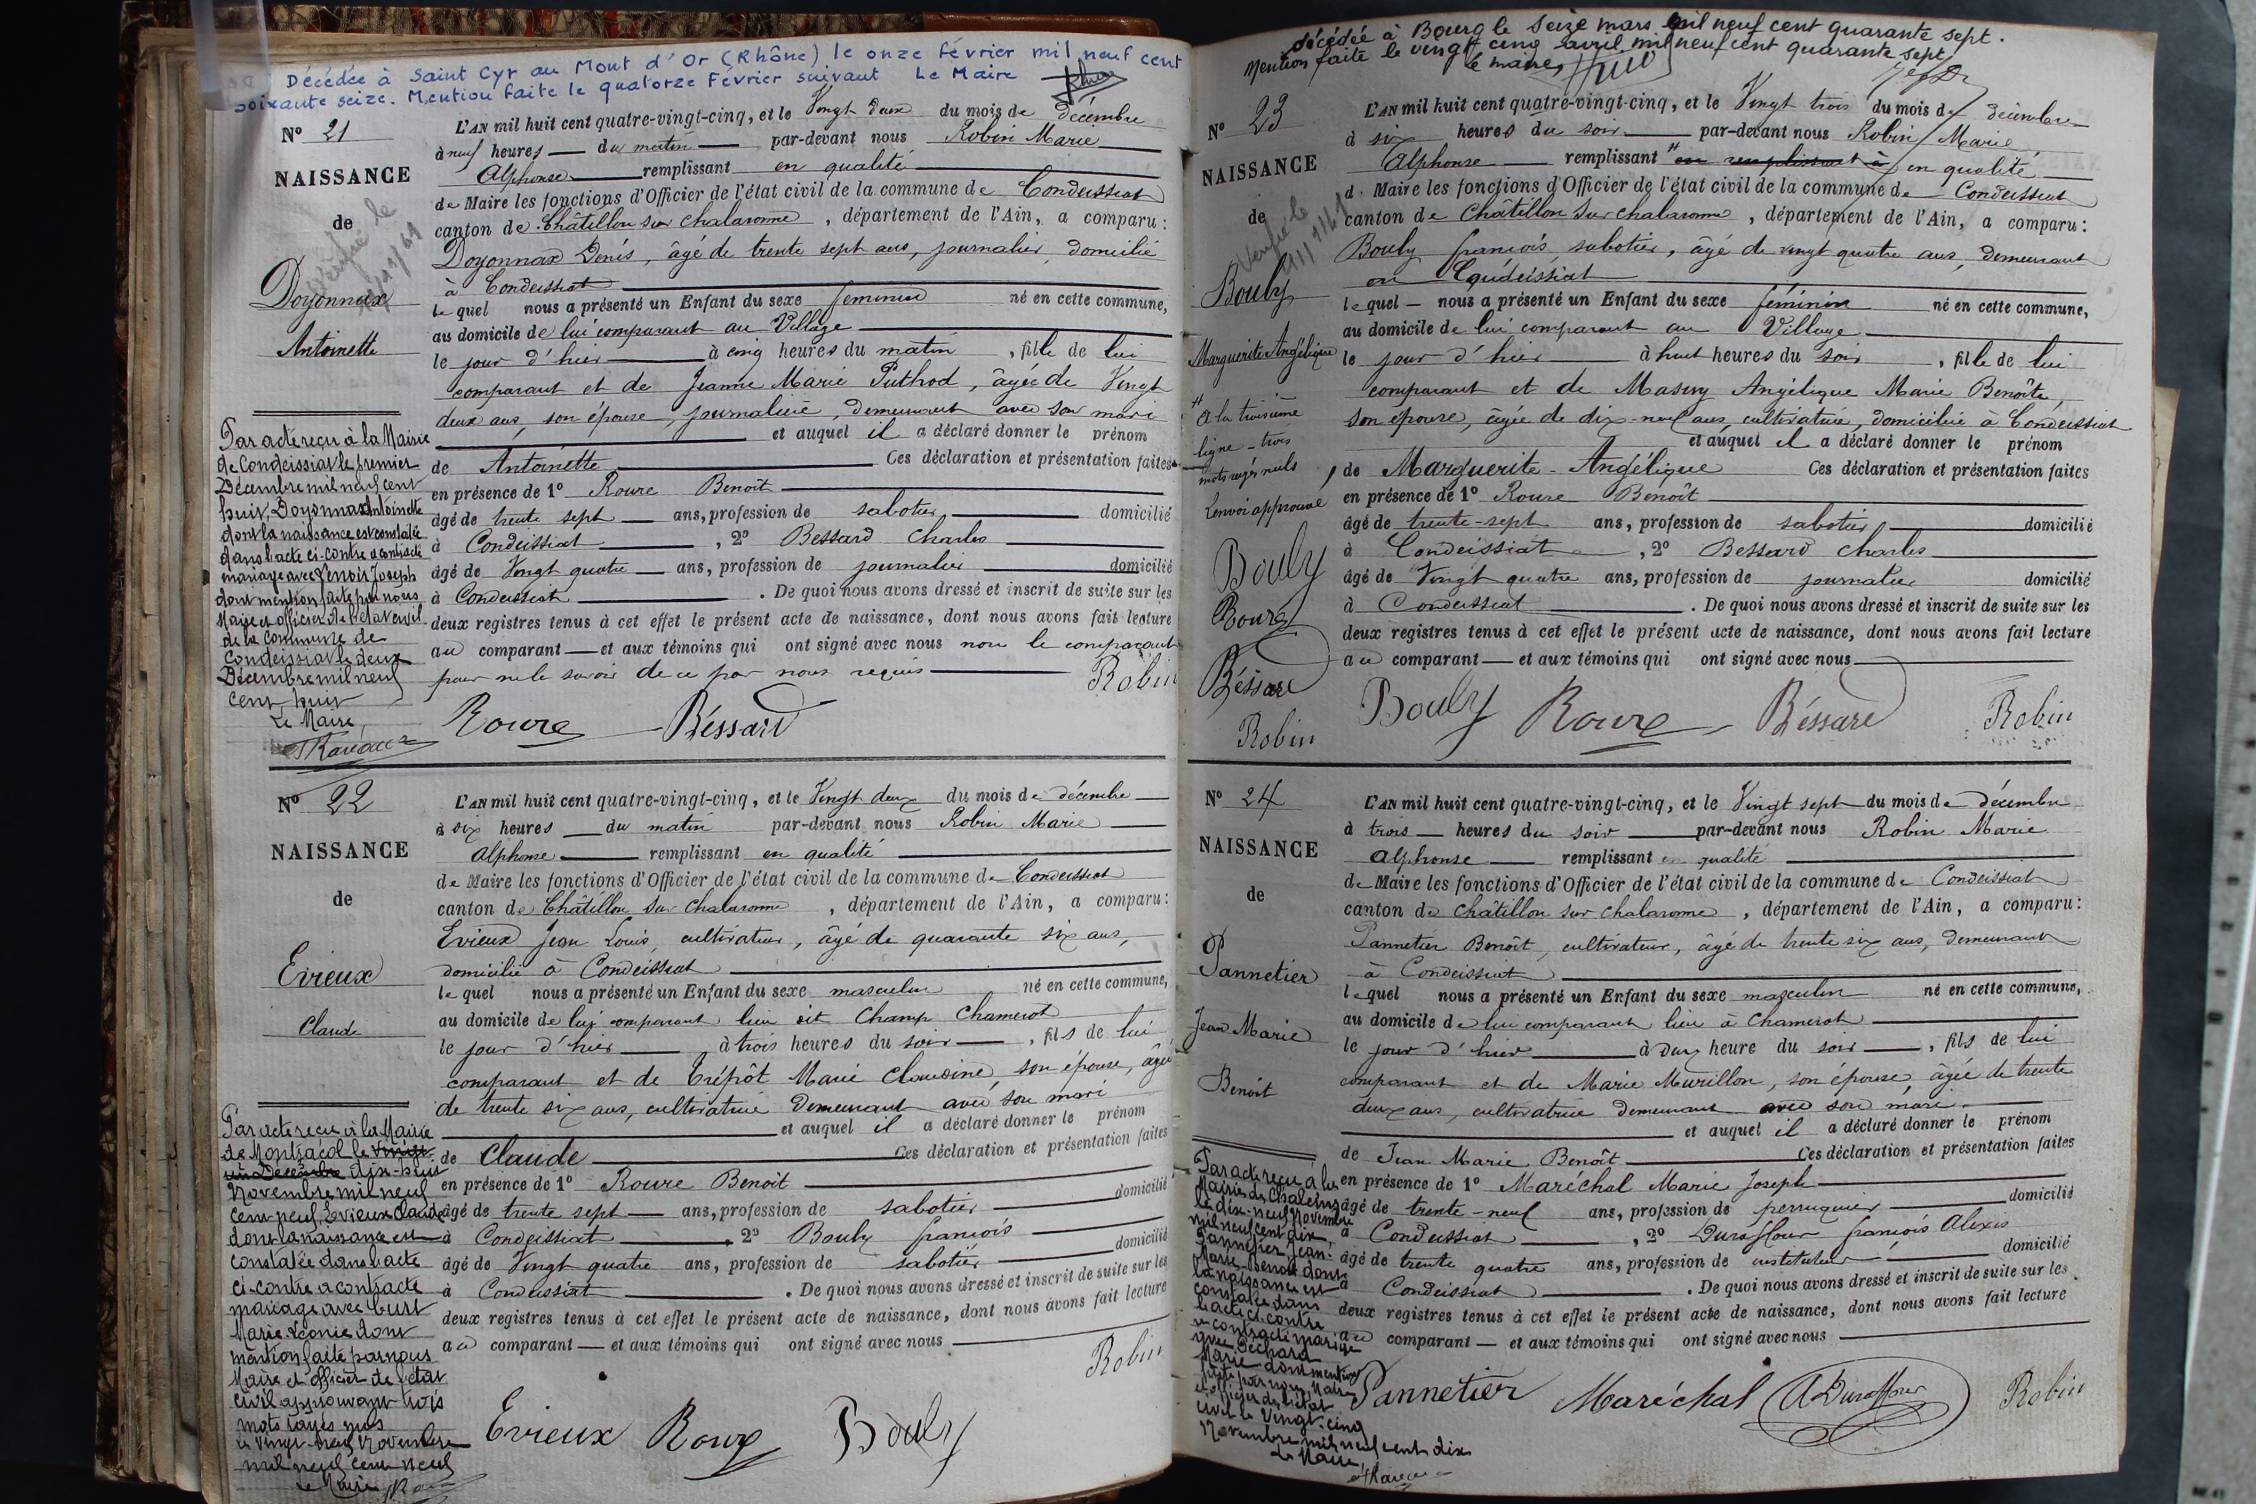 Décédée à Saint Cyr au Mont d'Or (Rhône) le onze Février mil neuf cent
soixante seize. Mention faite le quatorze Février suivant Le Maire
N° 21
NAISSANCE
de
Doyonnax
Antoinette
L'AN mil huit cent quatre-vingt-cinq, et le Vingt deux du mois de décembre
à neuf heures du matin par-devant nous Robin Marie
Alphonse remplissant en qualité
de Maire les fonctions d'Officier de l'état civil de la commune de Condeissiat
canton de Châtillon sur Chalaronne, département de l'Ain, a comparu:
Doyonnax Denis, âgé de trente sept ans, journalier, domicilié
à Condeissiat
lequel nous a présenté un Enfant du sexe feminin né en cette commune,
au domicile de lui comparant au Village
le jour d'hier à cinq heures du matin, fille de lui
comparant et de Jeanne Marie Puthod, âgée de Vingt
deux ans, son épouse, journalière, demeurant avec son mari
et auquel il a déclaré donner le prénom
de Antoinette Ces déclaration et présentation faites
en présence de 1° Roure Benoit
âgé de trente sept ans, profession de sabotier domicilié
à Condeissiat, 2° Bessard Charles
âgé de Vingt quatre ans, profession de journalier domicilié
à Condeissiat. De quoi nous avons dressé et inscrit de suite sur les
deux registres tenus à cet effet le présent acte de naissance, dont nous avons fait lecture
au comparant et aux témoins qui ont signé avec nous non le comparant
pour ne le savoir de ce par nous requis
Robin
Roure Béssard
Par acte reçu à la Mairie
de Condeissiat le premier
Décembre mil neuf cent
huit, Doyonnax Antoinette
dont la naissance est constatée
dans l'acte ci-contre a contracté
mariage avec Joseph
dont mention faite par nous
Maire et officier de l'état civil
de la commune de
Condeissiat le deux
Décembre mil neuf
cent huit
Le Maire,
N° 22
NAISSANCE
de
Evieux
Claude
L'AN mil huit cent quatre-vingt-cinq, et le Vingt deux du mois de décembre
à six heures du matin par-devant nous Robin Marie
Alphonse remplissant en qualité
de Maire les fonctions d'Officier de l'état civil de la commune de Condeissiat
canton de Châtillon sur Chalaronne, département de l'Ain, a comparu:
Evieux Jean Louis, cultivateur, âgé de quarante six ans,
domicilié à Condeissiat
lequel nous a présenté un Enfant du sexe masculin né en cette commune,
au domicile de lui comparant lieu dit Champ Chamerot
le jour d'hier à trois heures du soir, fils de lui
comparant et de Crépôt Marie Claudine, son épouse, âgée
de trente six ans, cultivatrice demeurant avec son mari
et auquel il a déclaré donner le prénom
de Claude Ces déclaration et présentation faites
en présence de 1° Roure Benoit domicilié
âgé de trente sept ans, profession de sabotier
à Condeissiat, 2° Bouly françois domicilié
âgé de Vingt quatre ans, profession de sabotier
à Condeissiat. De quoi nous avons dressé et inscrit de suite sur les
deux registres tenus à cet effet le présent acte de naissance, dont nous avons fait lecture
au comparant et aux témoins qui ont signé avec nous
Robin
Evieux Roure Bouly
Par acte reçu à la Mairie
de Montracol le vingt
un Décembre dix-huit
Novembre mil neuf
cent neuf Evieux Claude
dont la naissance est
constatée dans l'acte
ci-contre a contracté
mariage avec
Marie Léonie dont
mention faite par nous
Maire et officier de l'état
civil approuvant trois
mots rayés nuls
le vingt-neuf Novembre
mil neuf cent neuf
Le Maire
décédée à Bourg le seize mars mil neuf cent quarante sept.
Mention faite le vingt cinq avril mil neuf cent quarante sept
le maire,
N° 23
NAISSANCE
de
Bouly
Marguerite Angélique
L'AN mil huit cent quatre-vingt-cinq, et le Vingt trois du mois de décembre
à six heures du soir par-devant nous Robin Marie
Alphonse remplissant # en remplissant à en qualité
de Maire les fonctions d'Officier de l'état civil de la commune de Condeissiat
canton de Châtillon sur Chalaronne, département de l'Ain, a comparu:
Bouly françois, sabotier, âgé de vingt quatre ans, demeurant
à Condeissiat
lequel nous a présenté un Enfant du sexe féminin né en cette commune,
au domicile de lui comparant au Village
le jour d'hier à huit heures du soir, fille de lui
comparant et de Masuy Angélique Marie Benoîte,
son épouse, âgée de dix-neuf ans, cultivatrice, domiciliée à Condeissiat
et auquel il a déclaré donner le prénom
de Marguerite-Angélique Ces déclaration et présentation faites
en présence de 1° Roure Benoît
âgé de trente-sept ans, profession de sabotier domicilié
à Condeissiat, 2° Bessard Charles
âgé de Vingt quatre ans, profession de journalier domicilié
à Condeissiat. De quoi nous avons dressé et inscrit de suite sur les
deux registres tenus à cet effet le présent acte de naissance, dont nous avons fait lecture
au comparant et aux témoins qui ont signé avec nous
Bouly Roure Béssard Robin
# à la troisième
ligne trois
mots rayés nuls
Renvoi approuvé
Bouly
Roure
Béssard
Robin
N° 24
NAISSANCE
de
Pannetier
Jean Marie
Benoit
L'AN mil huit cent quatre-vingt-cinq, et le Vingt sept du mois de décembre
à trois heures du soir par-devant nous Robin Marie
Alphonse remplissant en qualité
de Maire les fonctions d'Officier de l'état civil de la commune de Condeissiat
canton de Châtillon sur Chalaronne, département de l'Ain, a comparu:
Pannetier Benoît, cultivateur, âgé de trente six ans, demeurant
à Condeissiat
lequel nous a présenté un Enfant du sexe masculin né en cette commune,
au domicile de lui comparant lieu à Chamerot
le jour d'hier à heure du soir, fils de lui
comparant et de Marie Murillon, son épouse, âgée de trente
deux ans, cultivatrice demeurant avec son mari
et auquel il a déclaré donner le prénom
de Jean Marie Benoît Ces déclaration et présentation faites
en présence de 1° Maréchal Marie Joseph
âgé de trente-neuf ans, profession de perruquier domicilié
à Condeissiat, 2° Duraffour françois Alexis
âgé de trente quatre ans, profession de instituteur domicilié
à Condeissiat. De quoi nous avons dressé et inscrit de suite sur les
deux registres tenus à cet effet le présent acte de naissance, dont nous avons fait lecture
au comparant et aux témoins qui ont signé avec nous
Pannetier Maréchal A Duraffour Robin
Par acte reçu à la
Mairie de Chaleins
le dix-neuf Novembre
mil neuf cent dix,
Pannetier Jean-
Marie-Benoit dont
la naissance est
constatée dans
l'acte ci-contre
a contracté mariage
avec Péchard
Marie dont mention
faite par nous Maire
et officier de l'état
civil le Vingt-cinq
Novembre mil neuf cent dix
Le Maire,